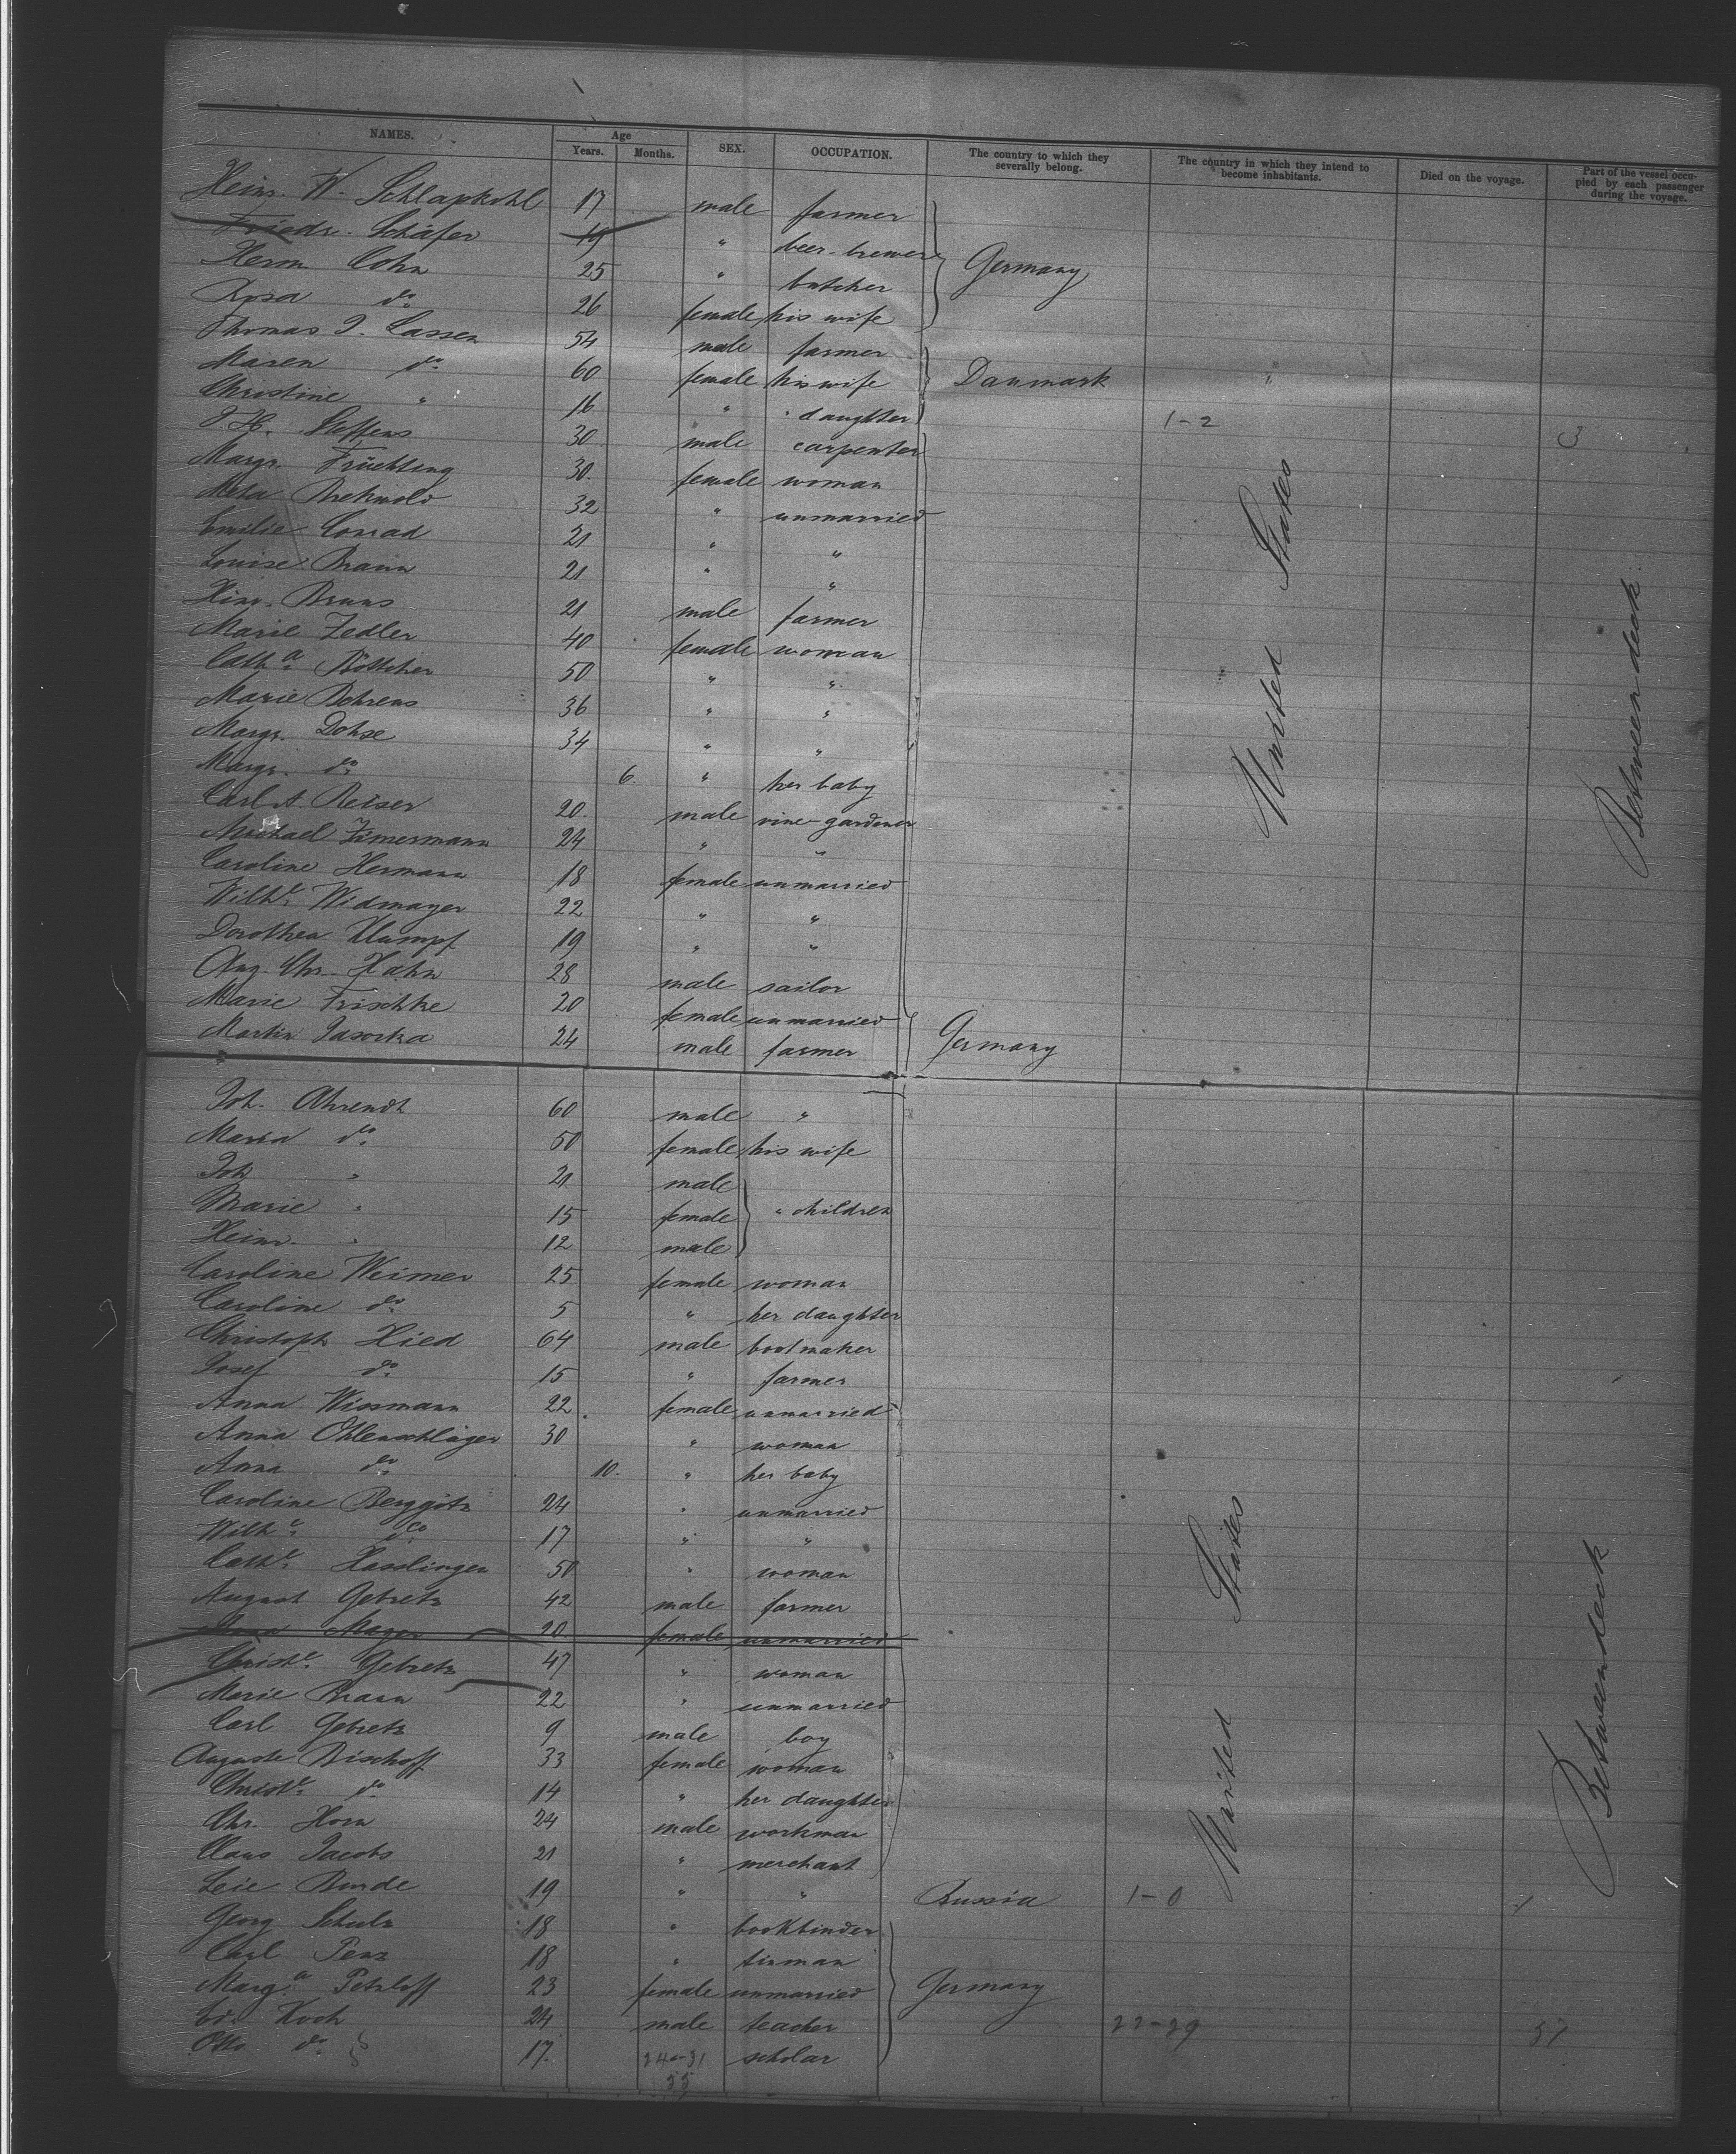 NAMES. Age Years. Months. SEX. OCCUPATION. The country to which they severally belong. The country in which they intend to become inhabitants. Died on the voyage. Part of the vessel occupied by each passenger during the voyage.
Heinr. W. Schlapkohl 17 male farmer
Friedr. Schäfer 19 " beer-brewer
Herm Cohn 25 " butcher Germany
Rosa do 26 female his wife
Thomas J. Lassen 54 male farmer
Maren do 60 female his wife Danmark "
Christine " 16 " " daughter 1-2
J. H. Steffens 30 male carpenter 3
Margr. Früchting 30. female woman
Meta 32 " unmarried
Emilie Conrad 21 " "
Louise Braun 21 " "
Hinr. Bruns 21 male farmer
Marie Zedler 40 female woman
Catha Böttcher 50 " "
Marie Behrens 36 " "
Margr. Dohse 34 " "
Margr. do 6. " her baby
Carl A. Reiser 20. male vine-gardener
Michael Zimermann 24 " "
Caroline Hermann 18 female unmarried
Wilhe Widmayer 22 " "
Dorothea Klumpf 19 " "
Aug. Chr. Hahn 28 male sailor
Marie Frischke 20 female unmarried
Martin Jasorka 24 male farmer Germany
United States
Between deck
Joh. Ahrendt 60 male "
Maria do 50 female his wife
Joh " 21 male
Marie " 15 female " children
Heinr. " 12 male
Caroline Weimer 25 female woman
Caroline do 5 " her daughter
Christoph Hied 64 male bootmaker
Josef do 15 " farmer
Anna Wissmann 22 female unmarried
Anna Ohlenschläger 30 " woman
Anna do 10. " her baby
Caroline Berggötz 24 " unmarried
Wilhe do 17 " "
Cathe Hasslinger 50 " woman
August Gebretz 42 male farmer
Anna Mayer 20. female unmarried
Christe Gebretz 47 " woman
Marie Braun 22 " unmarried
Carl Gebretz 9 male boy
Auguste Bischoff 33 female woman
Christe do 14 " her daughter
Chr. Horn 24 male workman
Claus Jacobs 21 " merchant
Leie Bunde 19 " " Russia 1-0 1
Georg Schulz 18 " bookbinder
Carl Penz 18 " tinman
Marga Petzloff 23 female unmarried Germany
Ed. Koch 24 male teacher 22-29 51
Otto do 17. 24-31 scholar
55
United States
Betweendeck